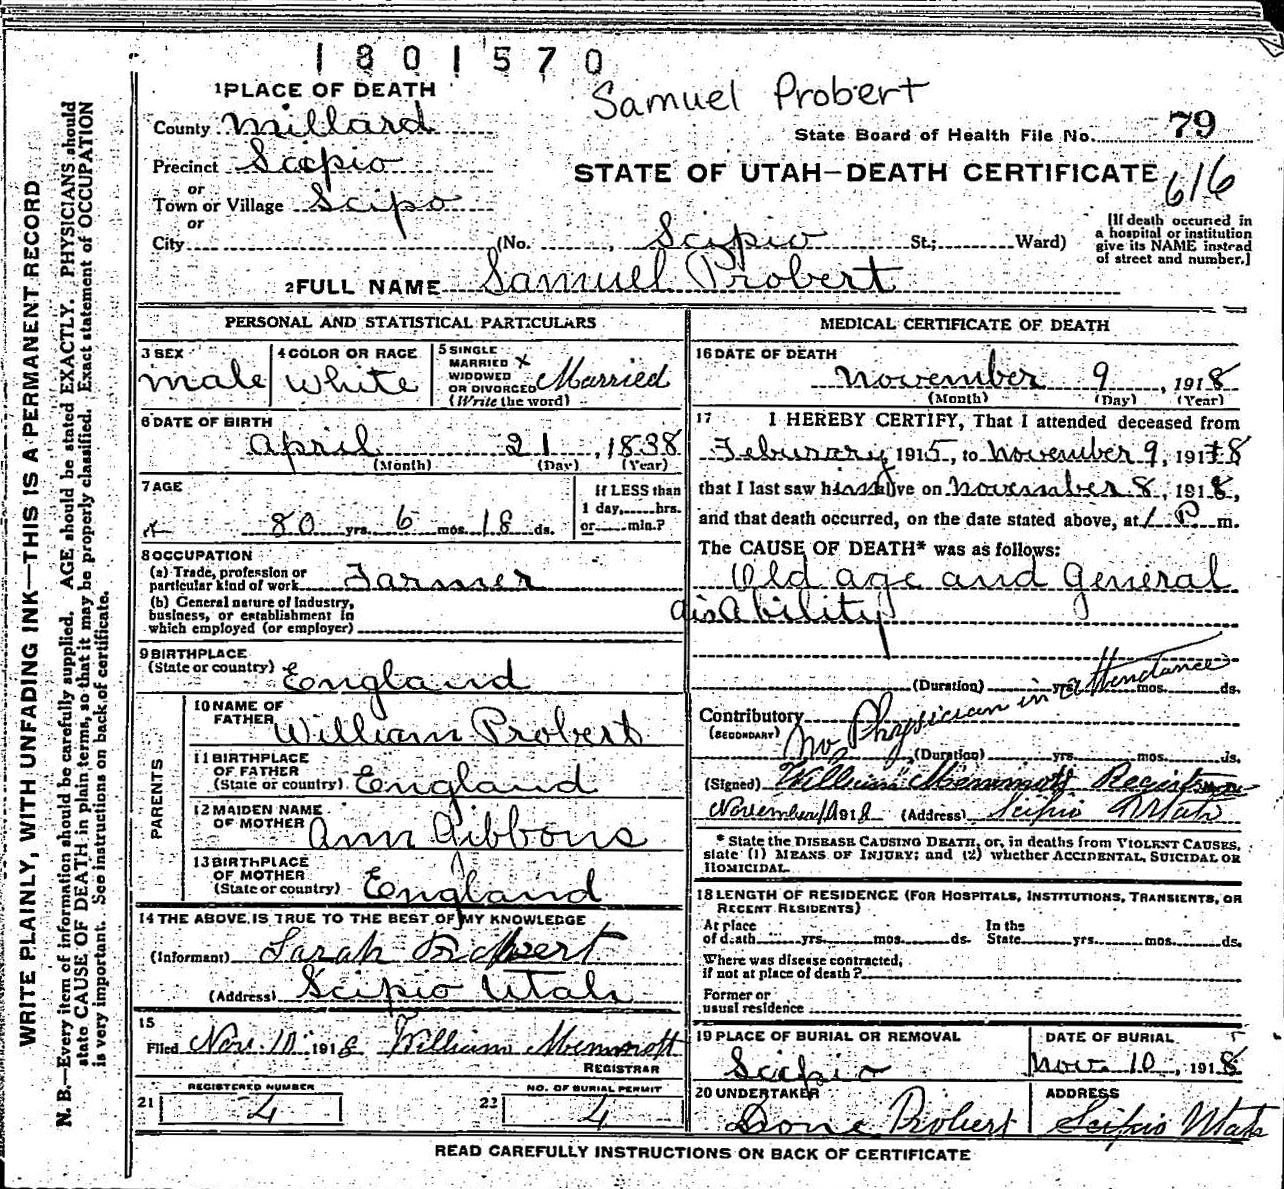 1801570
Samuel Probert
1 PLACE OF DEATH
County Millard
Precinct Scipio
or
Town or Village Scipo
or
City (No. , Scipio St.; Ward)
State Board of Health File No. 79
STATE OF UTAH—DEATH CERTIFICATE
616
[If death occurred in
a hospital or institution
give its NAME instead
of street and number.]
2 FULL NAME Samuel Probert
PERSONAL AND STATISTICAL PARTICULARS
3 SEX
male
4 COLOR OR RACE
White
5 SINGLE
MARRIED X
WIDOWED
OR DIVORCED Married
(Write the word)
6 DATE OF BIRTH
April 21, 1838
(Month) (Day) (Year)
7 AGE
80 yrs. 6 mos. 18 ds.
If LESS than
1 day, hrs.
or min.?
8 OCCUPATION
(a) Trade, profession or
particular kind of work Farmer
(b) General nature of industry,
business, or establishment in
which employed (or employer)
9 BIRTHPLACE
(State or country) England
PARENTS
10 NAME OF
FATHER William Probert
11 BIRTHPLACE
OF FATHER
(State or country) England
12 MAIDEN NAME
OF MOTHER Ann Gibbons
13 BIRTHPLACE
OF MOTHER
(State or country) England
14 THE ABOVE IS TRUE TO THE BEST OF MY KNOWLEDGE
(Informant) Sarah Probert
(Address) Scipio Utah
15
Filed Nov. 10 1918 William Memmott
REGISTRAR
REGISTERED NUMBER
21 4
NO. OF BURIAL PERMIT
22 4
MEDICAL CERTIFICATE OF DEATH
16 DATE OF DEATH
November 9, 1918
(Month) (Day) (Year)
17 I HEREBY CERTIFY, That I attended deceased from
Februrary 1915, to November 9, 1918
that I last saw him alive on November 8, 1918,
and that death occurred, on the date stated above, at 1 P m.
The CAUSE OF DEATH* was as follows:
Old age and General
disAbility
(Duration) yrs. mos. ds.
Contributory
(SECONDARY)
No Physician in attendance
(Duration) yrs. mos. ds.
(Signed) William Memmott Registrar
November 1918 (Address) Scipio Utah
* State the DISEASE CAUSING DEATH, or, in deaths from VIOLENT CAUSES,
state (1) MEANS OF INJURY; and (2) whether ACCIDENTAL, SUICIDAL OR
HOMICIDAL.
18 LENGTH OF RESIDENCE (FOR HOSPITALS, INSTITUTIONS, TRANSIENTS, OR
RECENT RESIDENTS)
At place
of death yrs. mos. ds.
In the
State yrs. mos. ds.
Where was disease contracted,
if not at place of death?
Former or
usual residence
19 PLACE OF BURIAL OR REMOVAL
Scipio
DATE OF BURIAL
Nov. 10, 1918
20 UNDERTAKER
Probert
ADDRESS
Scipio Utah
READ CAREFULLY INSTRUCTIONS ON BACK OF CERTIFICATE
WRITE PLAINLY, WITH UNFADING INK—THIS IS A PERMANENT RECORD
N. B.—Every item of information should be carefully supplied. AGE should be stated EXACTLY. PHYSICIANS should
state CAUSE OF DEATH in plain terms, so that it may be properly classified. Exact statement of OCCUPATION
is very important. See instructions on back of certificate.